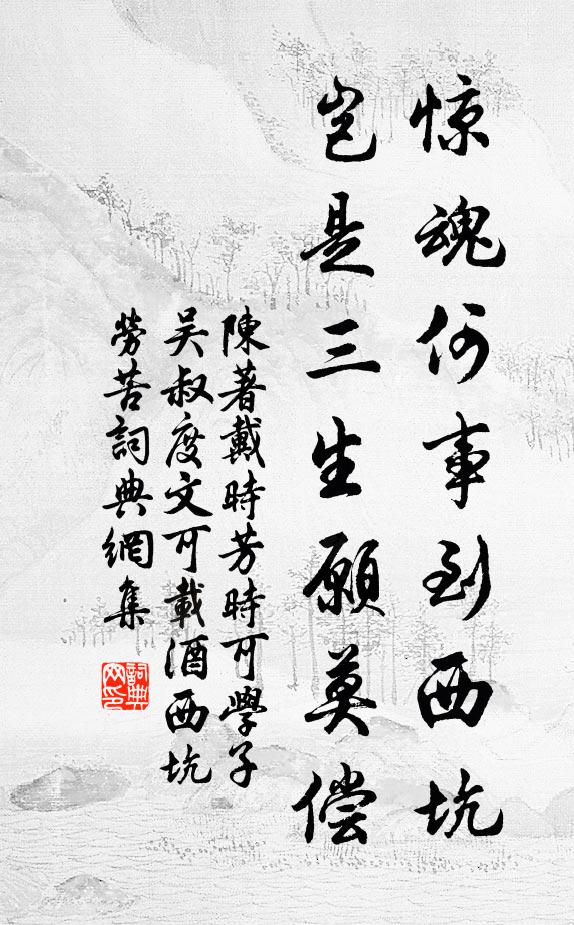 惊魂何事到西坑
岂是三生愿莫偿
陳著戴時芳時可學子
吴叔度文可載酒西坑
勞苦詞典網集
詞典
网印